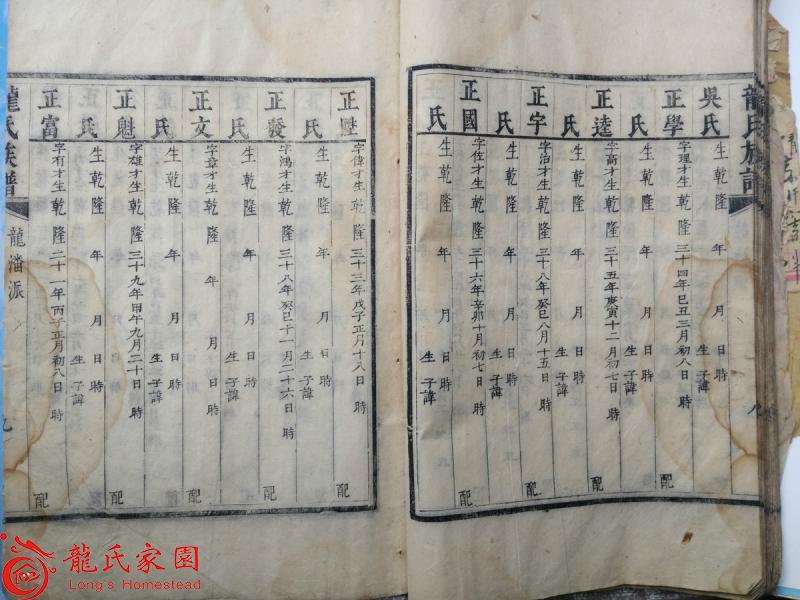 龍氏族譜
吳氏 生乾隆 年 月 日 時 生子諱
正學 字理才生乾隆三十四年己丑三月初八日 時 配
氏 生乾隆 年 月 日 時 生子諱
正逵 字高才生乾隆三十五年庚寅十二月初七日 時 配
氏 生乾隆 年 月 日 時 生子諱
正字 字治才生乾隆三十八年癸巳八月十五日 時 配
氏 生乾隆 年 月 日 時 生子諱
正國 字佐才生乾隆三十六年辛卯十月初七日 時 配
氏 生乾隆 年 月 日 時 生子諱
正陞 字偉才生乾隆三十三年戊子正月十八日 時 配
氏 生乾隆 年 月 日 時 生子諱
正發 字鴻才生乾隆三十八年癸巳十一月二十六日 時 配
氏 生乾隆 年 月 日 時 生子諱
正文 字章才生乾隆 年 月 日 時 配
氏 生乾隆 年 月 日 時 生子諱
正魁 字雄才生乾隆三十九年甲午九月二十日 時 配
氏 生乾隆 年 月 日 時 生子諱
正富 字有才生乾隆二十一年丙子正月初八日 時 配
龍氏族譜
龍潘派
九
龍氏家園
Long's Homestead